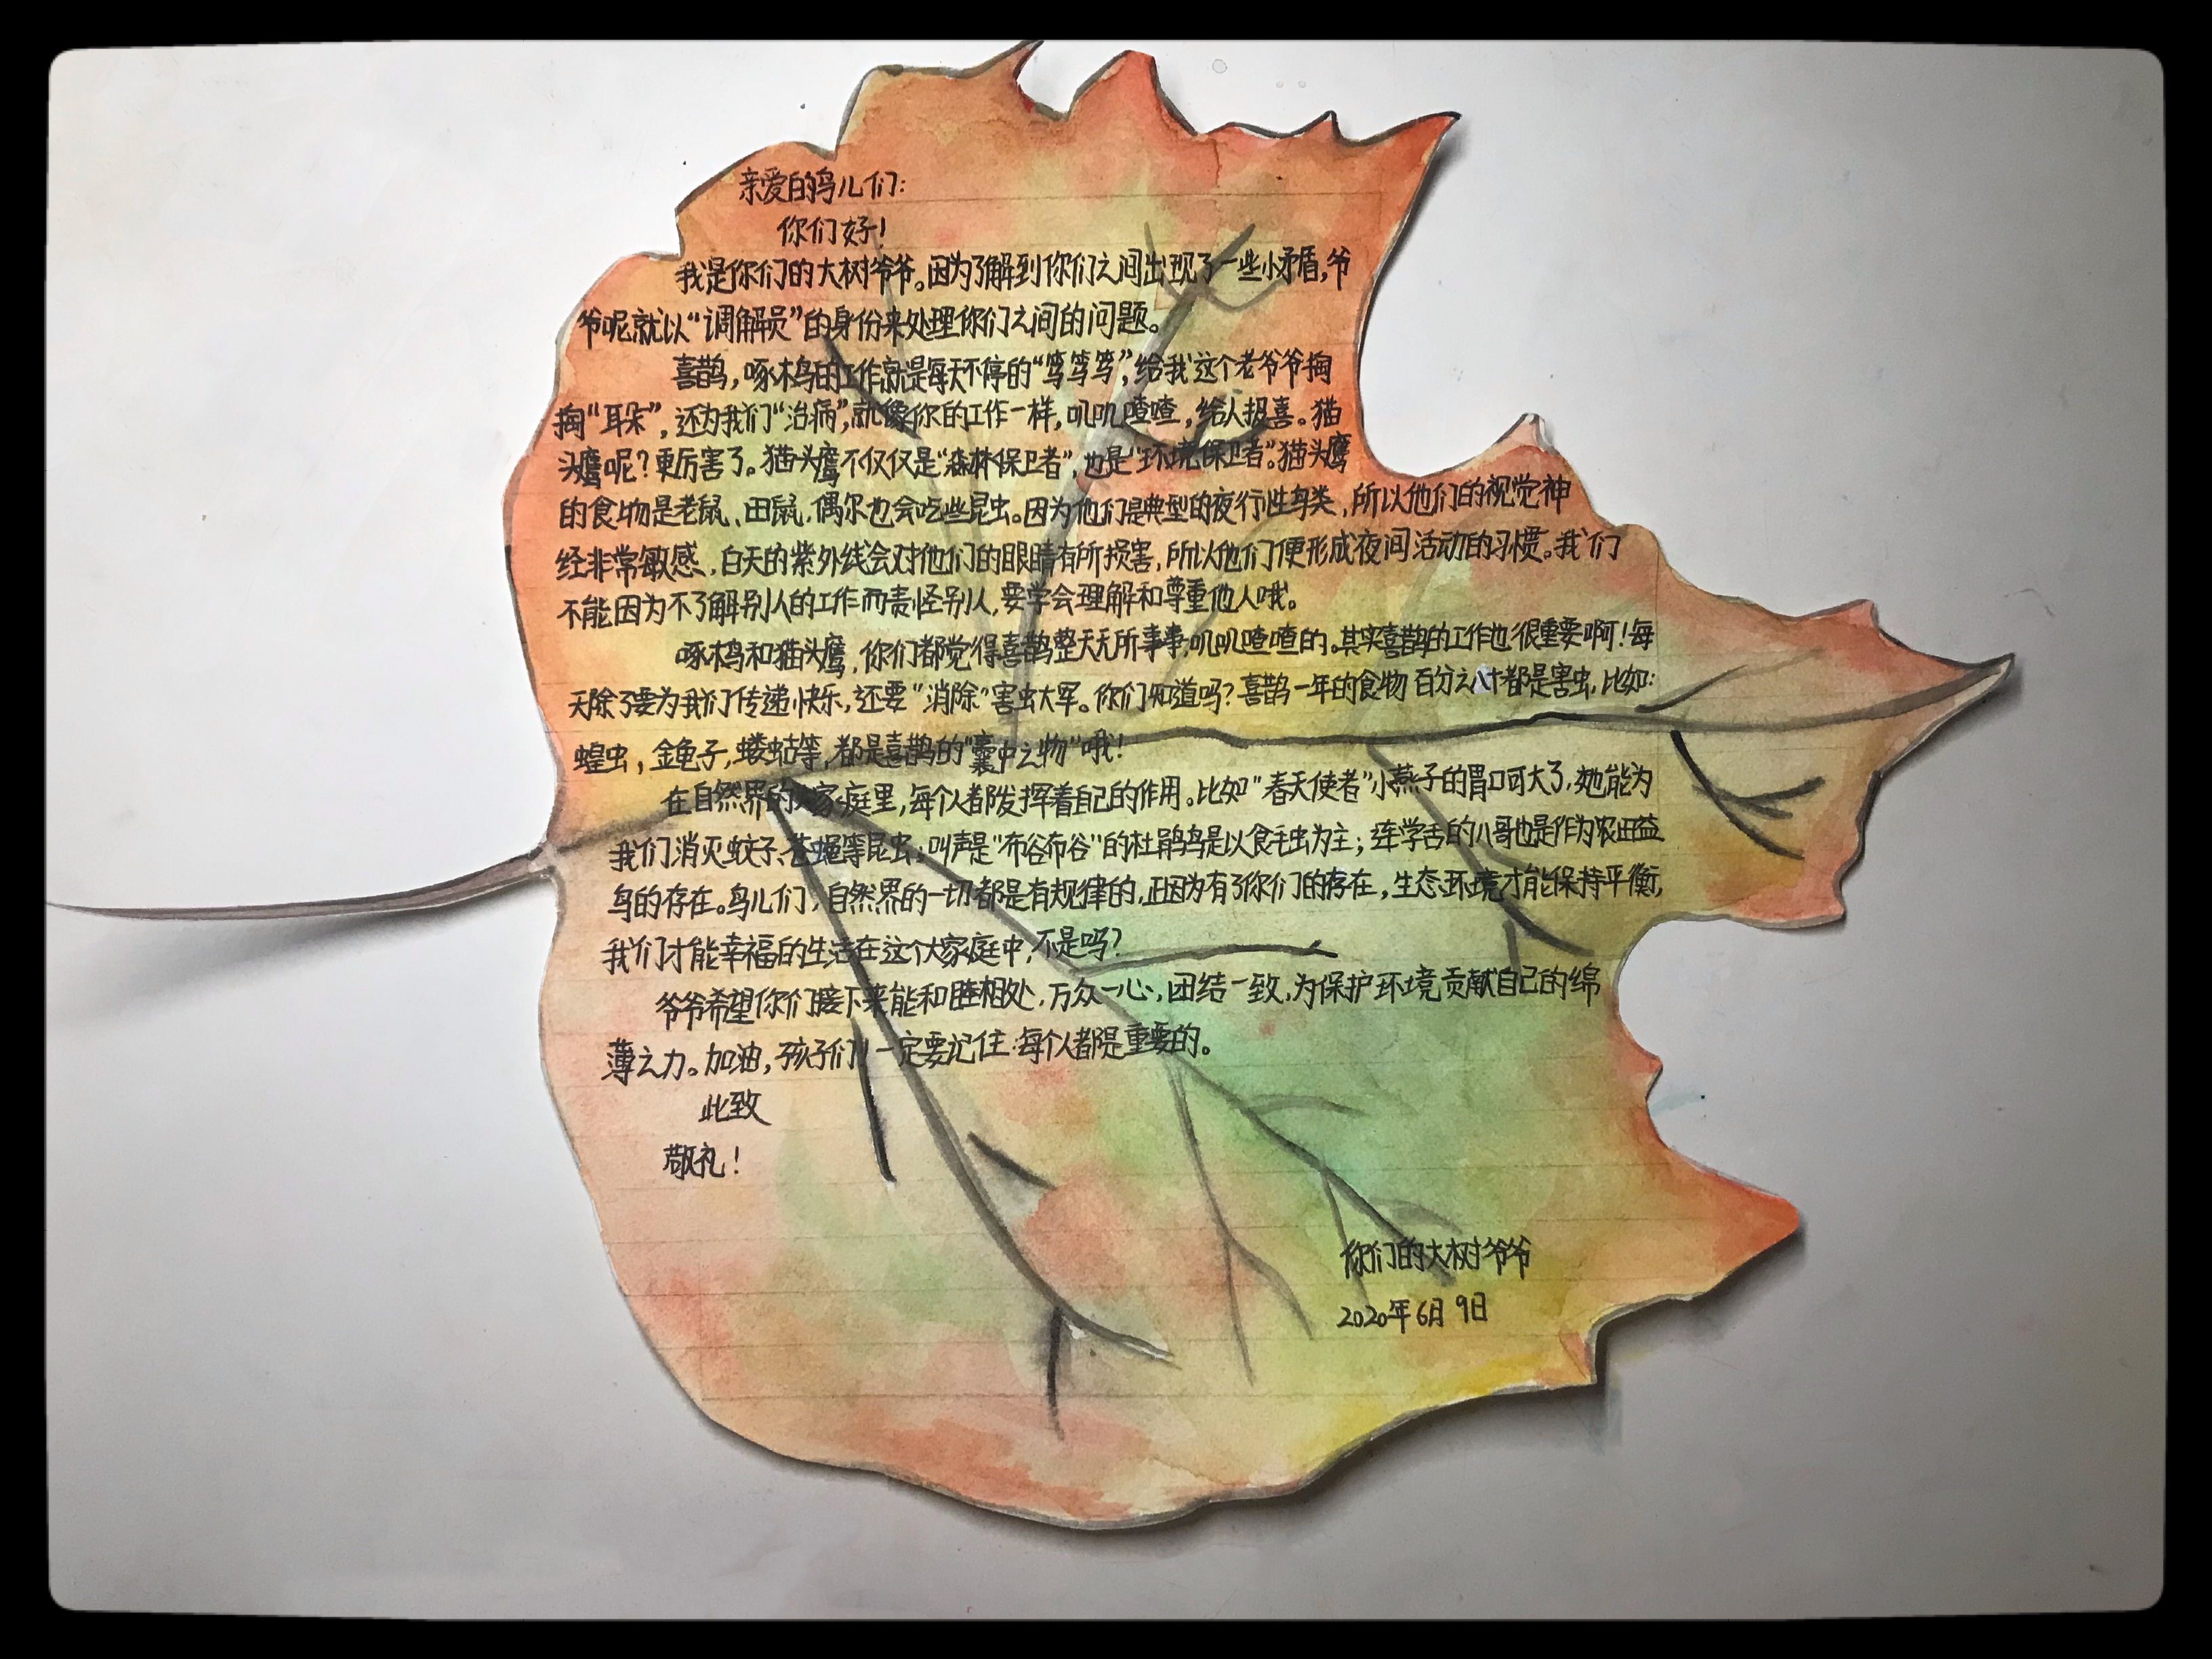 亲爱的鸟儿们：
你们好！
我是你们的大树爷爷。因为了解到你们之间出现了一些小矛盾，爷
爷呢就以“调解员”的身份来处理你们之间的问题。
喜鹊，啄木鸟的工作就是每天不停的“笃笃笃”，给我这个老爷爷掏
掏“耳朵”，还为我们“治病”，就像你的工作一样，叽叽喳喳，给人报喜。猫
头鹰呢？更厉害了。猫头鹰不仅仅是“森林保卫者”，也是“环境保卫者”。猫头鹰
的食物是老鼠、田鼠，偶尔也会吃些昆虫。因为他们是典型的夜行性鸟类，所以他们的视觉神
经非常敏感，白天的紫外线会对他们的眼睛有所损害，所以他们便形成夜间活动的习惯。我们
不能因为不了解别人的工作而责怪别人，要学会理解和尊重他人哦。
啄木鸟和猫头鹰，你们都觉得喜鹊整天无所事事，叽叽喳喳的。其实喜鹊的工作也很重要啊！每
天除了要为我们传递快乐，还要“消除”害虫大军。你们知道吗？喜鹊一年的食物百分之八十都是害虫，比如：
蝗虫，金龟子，蝼蛄等，都是喜鹊的“囊中之物”哦！
在自然界的大家庭里，每个人都发挥着自己的作用。比如“春天使者”小燕子的胃口可大了，她能为
我们消灭蚊子、苍蝇等昆虫；叫声是“布谷布谷”的杜鹃鸟是以食毛虫为主；连学舌的八哥也是作为农田益
鸟的存在。鸟儿们，自然界的一切都是有规律的，正因为有了你们的存在，生态环境才能保持平衡，
我们才能幸福的生活在这个大家庭中，不是吗？
爷爷希望你们接下来能和睦相处，万众一心，团结一致，为保护环境贡献自己的绵
薄之力。加油，孩子们！一定要记住：每个人都是重要的。
此致
敬礼！
你们的大树爷爷
2020年6月9日